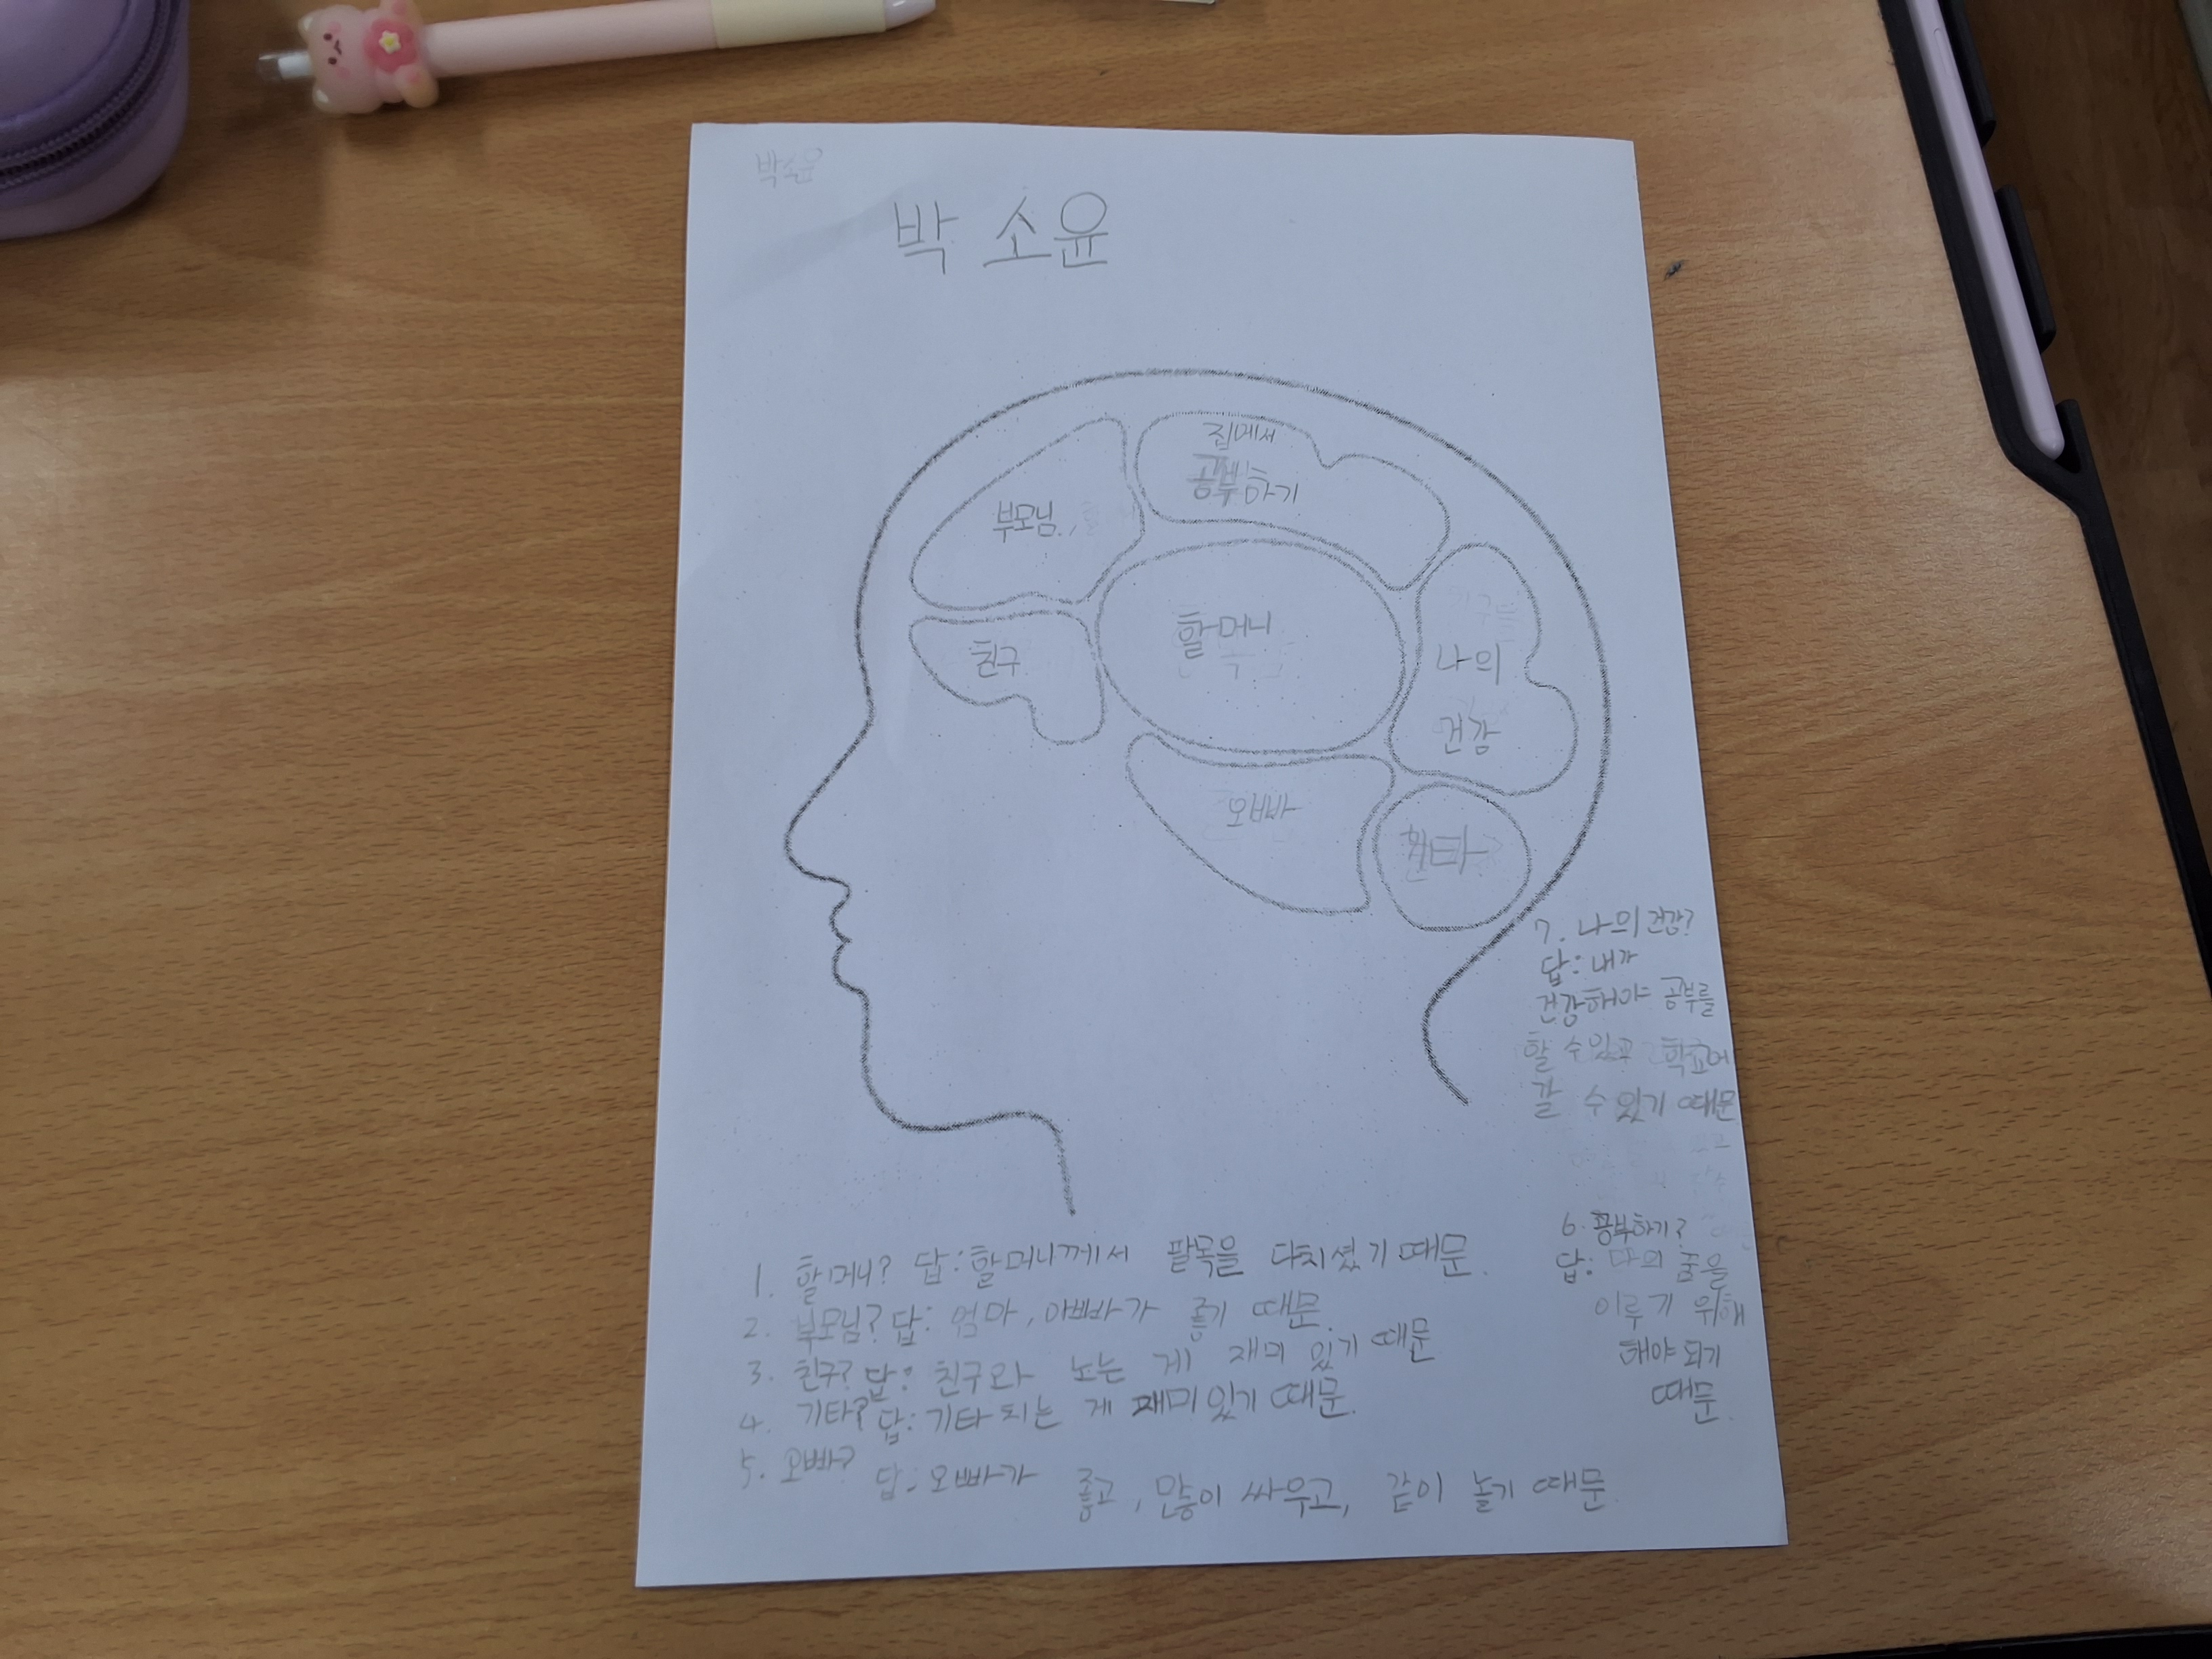 박소윤
박 소윤
집에서
공부하기
부모님
할머니
친구
나의
건강
오빠
7. 나의 건강?
답: 내가
건강해야 공부를
할 수 있고 학교에
갈 수 있기 때문
1. 할머니? 답: 할머니께서 팔목을 다치셨기 때문.
2. 부모님? 답: 엄마, 아빠가 좋기 때문.
3. 친구? 답: 친구와 노는 게 재미 있기 때문
4. 기타? 답: 기타 치는 게 재미있기 때문.
5. 오빠? 답: 오빠가 좋고, 많이 싸우고, 같이 놀기 때문.
6. 공부하기?
답: 나의 꿈을
이루기 위해
해야 되기
때문.